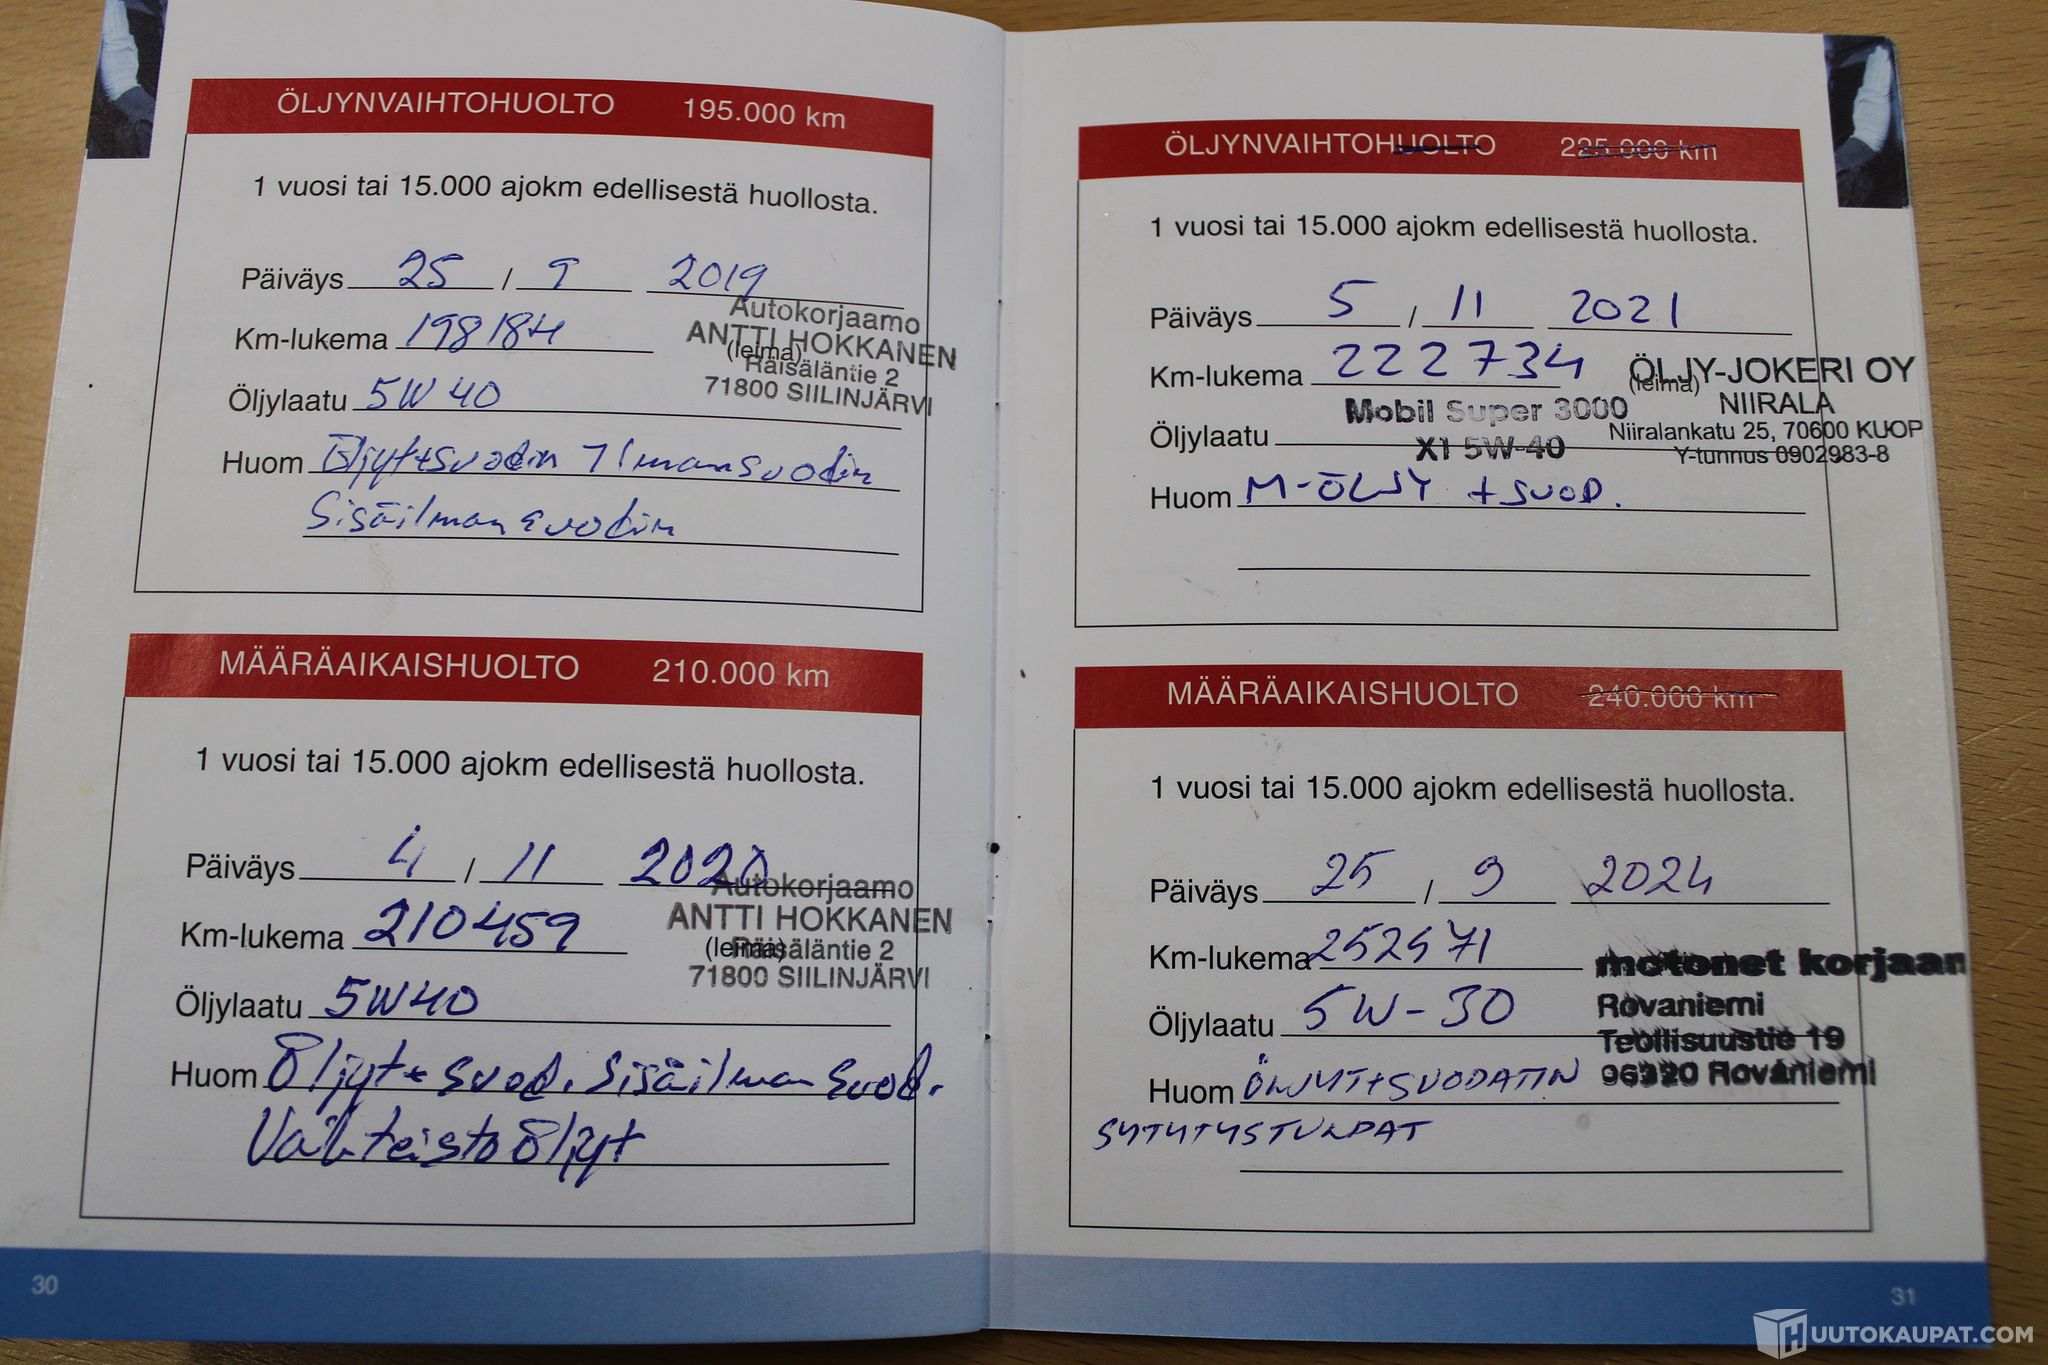 ÖLJYNVAIHTOHUOLTO 195.000 km
1 vuosi tai 15.000 ajokm edellisestä huollosta.
Päiväys 25 / 9 2019
Km-lukema 198184
Öljylaatu 5W40
Huom Öljyt+suodin Ilmansuodin
Sisäilmansuodin
(leima)
Autokorjaamo
ANTTI HOKKANEN
Räisäläntie 2
71800 SIILINJÄRVI
MÄÄRÄAIKAISHUOLTO 210.000 km
1 vuosi tai 15.000 ajokm edellisestä huollosta.
Päiväys 4 / 11 2020
Km-lukema 210459
Öljylaatu 5W40
Huom Öljyt+suod. Sisäilman suod.
Vaihteistoöljyt
(leima)
Autokorjaamo
ANTTI HOKKANEN
Räisäläntie 2
71800 SIILINJÄRVI
30
ÖLJYNVAIHTOHUOLTO 225.000 km
1 vuosi tai 15.000 ajokm edellisestä huollosta.
Päiväys 5 / 11 2021
Km-lukema 222734
Öljylaatu Mobil Super 3000
X1 5W-40
Huom M-ÖLJY + SUOD.
(leima)
ÖLJY-JOKERI OY
NIIRALA
Niiralankatu 25, 70600 KUOP
Y-tunnus 0902983-8
MÄÄRÄAIKAISHUOLTO 240.000 km
1 vuosi tai 15.000 ajokm edellisestä huollosta.
Päiväys 25 / 9 2024
Km-lukema 252571
Öljylaatu 5W-30
Huom ÖLJYT+SUODATIN
SYTYTYSTULPAT
motonet korjaam
Rovaniemi
Teollisuustie 19
96320 Rovaniemi
31
HUUTOKAUPAT.COM